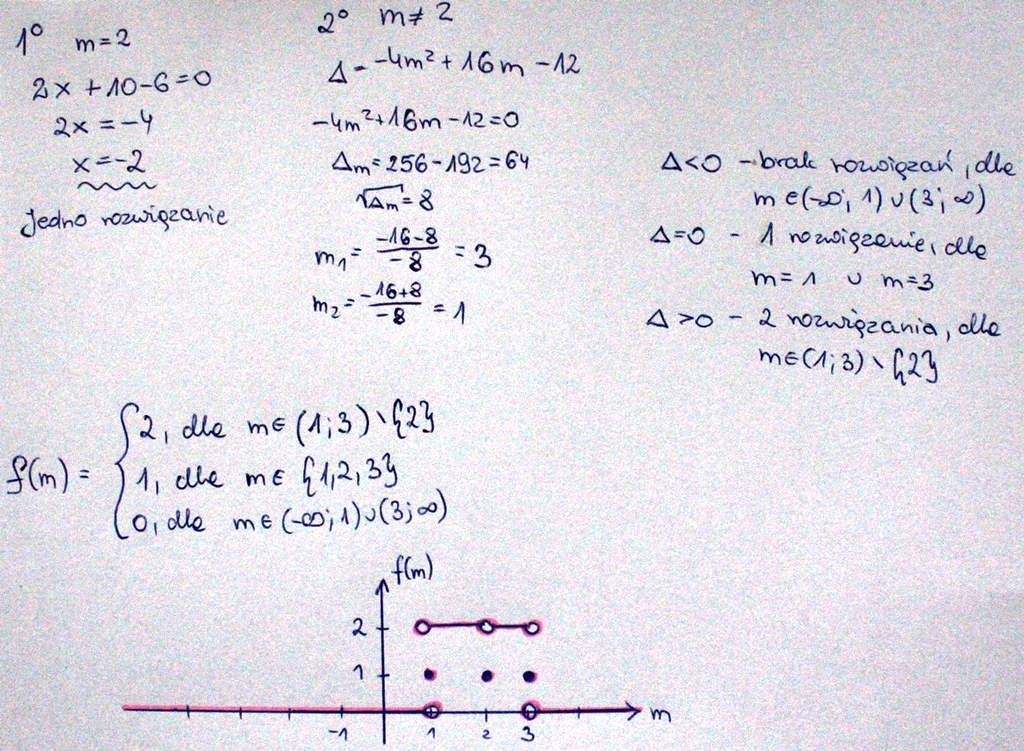 1° m=2
2x+10-6=0
2x=-4
x=-2
Jedno rozwiązanie
2° m≠2
Δ=-4m²+16m-12
-4m²+16m-12=0
Δm=256-192=64
√Δm=8
m₁=(-16-8)/(-8)=3
m₂=(-16+8)/(-8)=1
Δ<0 - brak rozwiązań, dla
m∈(-∞; 1)∪(3; ∞)
Δ=0 - 1 rozwiązanie, dla
m=1 ∪ m=3
Δ>0 - 2 rozwiązania, dla
m∈(1;3)\{2}
f(m)=
2, dla m∈(1;3)\{2}
1, dla m∈{1,2,3}
0, dla m∈(-∞; 1)∪(3; ∞)
f(m)
2
1
-1 1 2 3 m